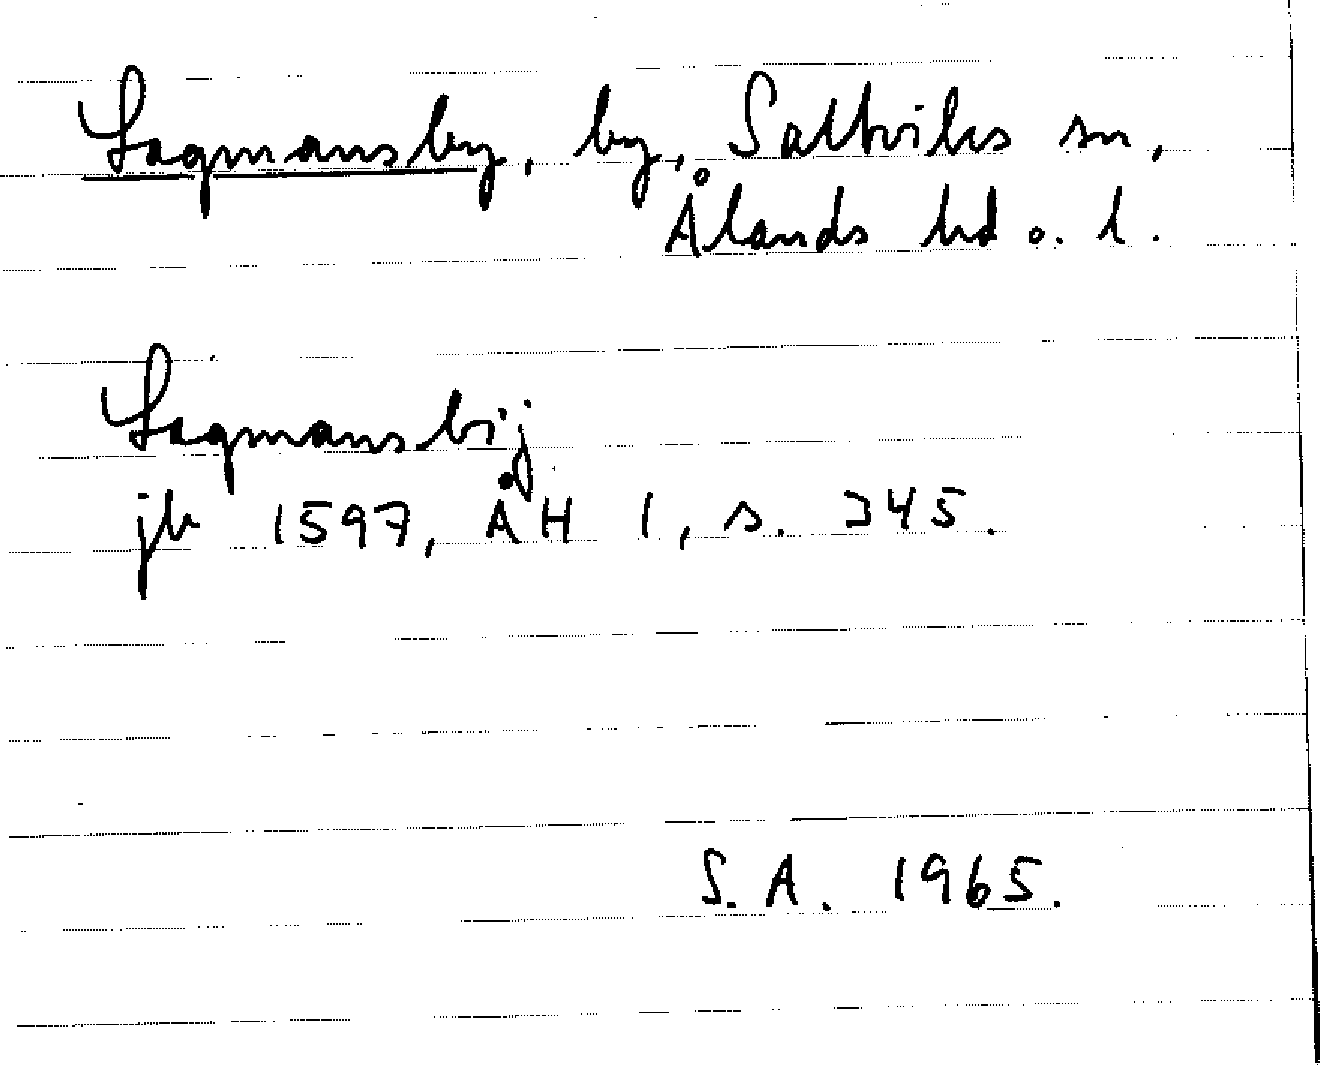 Lagmansby, by, Saltviks sn,
Ålands hd o. l.
Lagmans bij
jb 1597, ÅH 1, s. 245.
S. A. 1965.